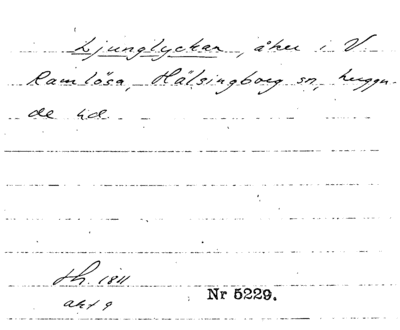 Ljunglyckan, åker i V
Ramlösa, Hälsingborg sn, Luggu-
de hd
Lh. 1811
akt 9
Nr 5229.